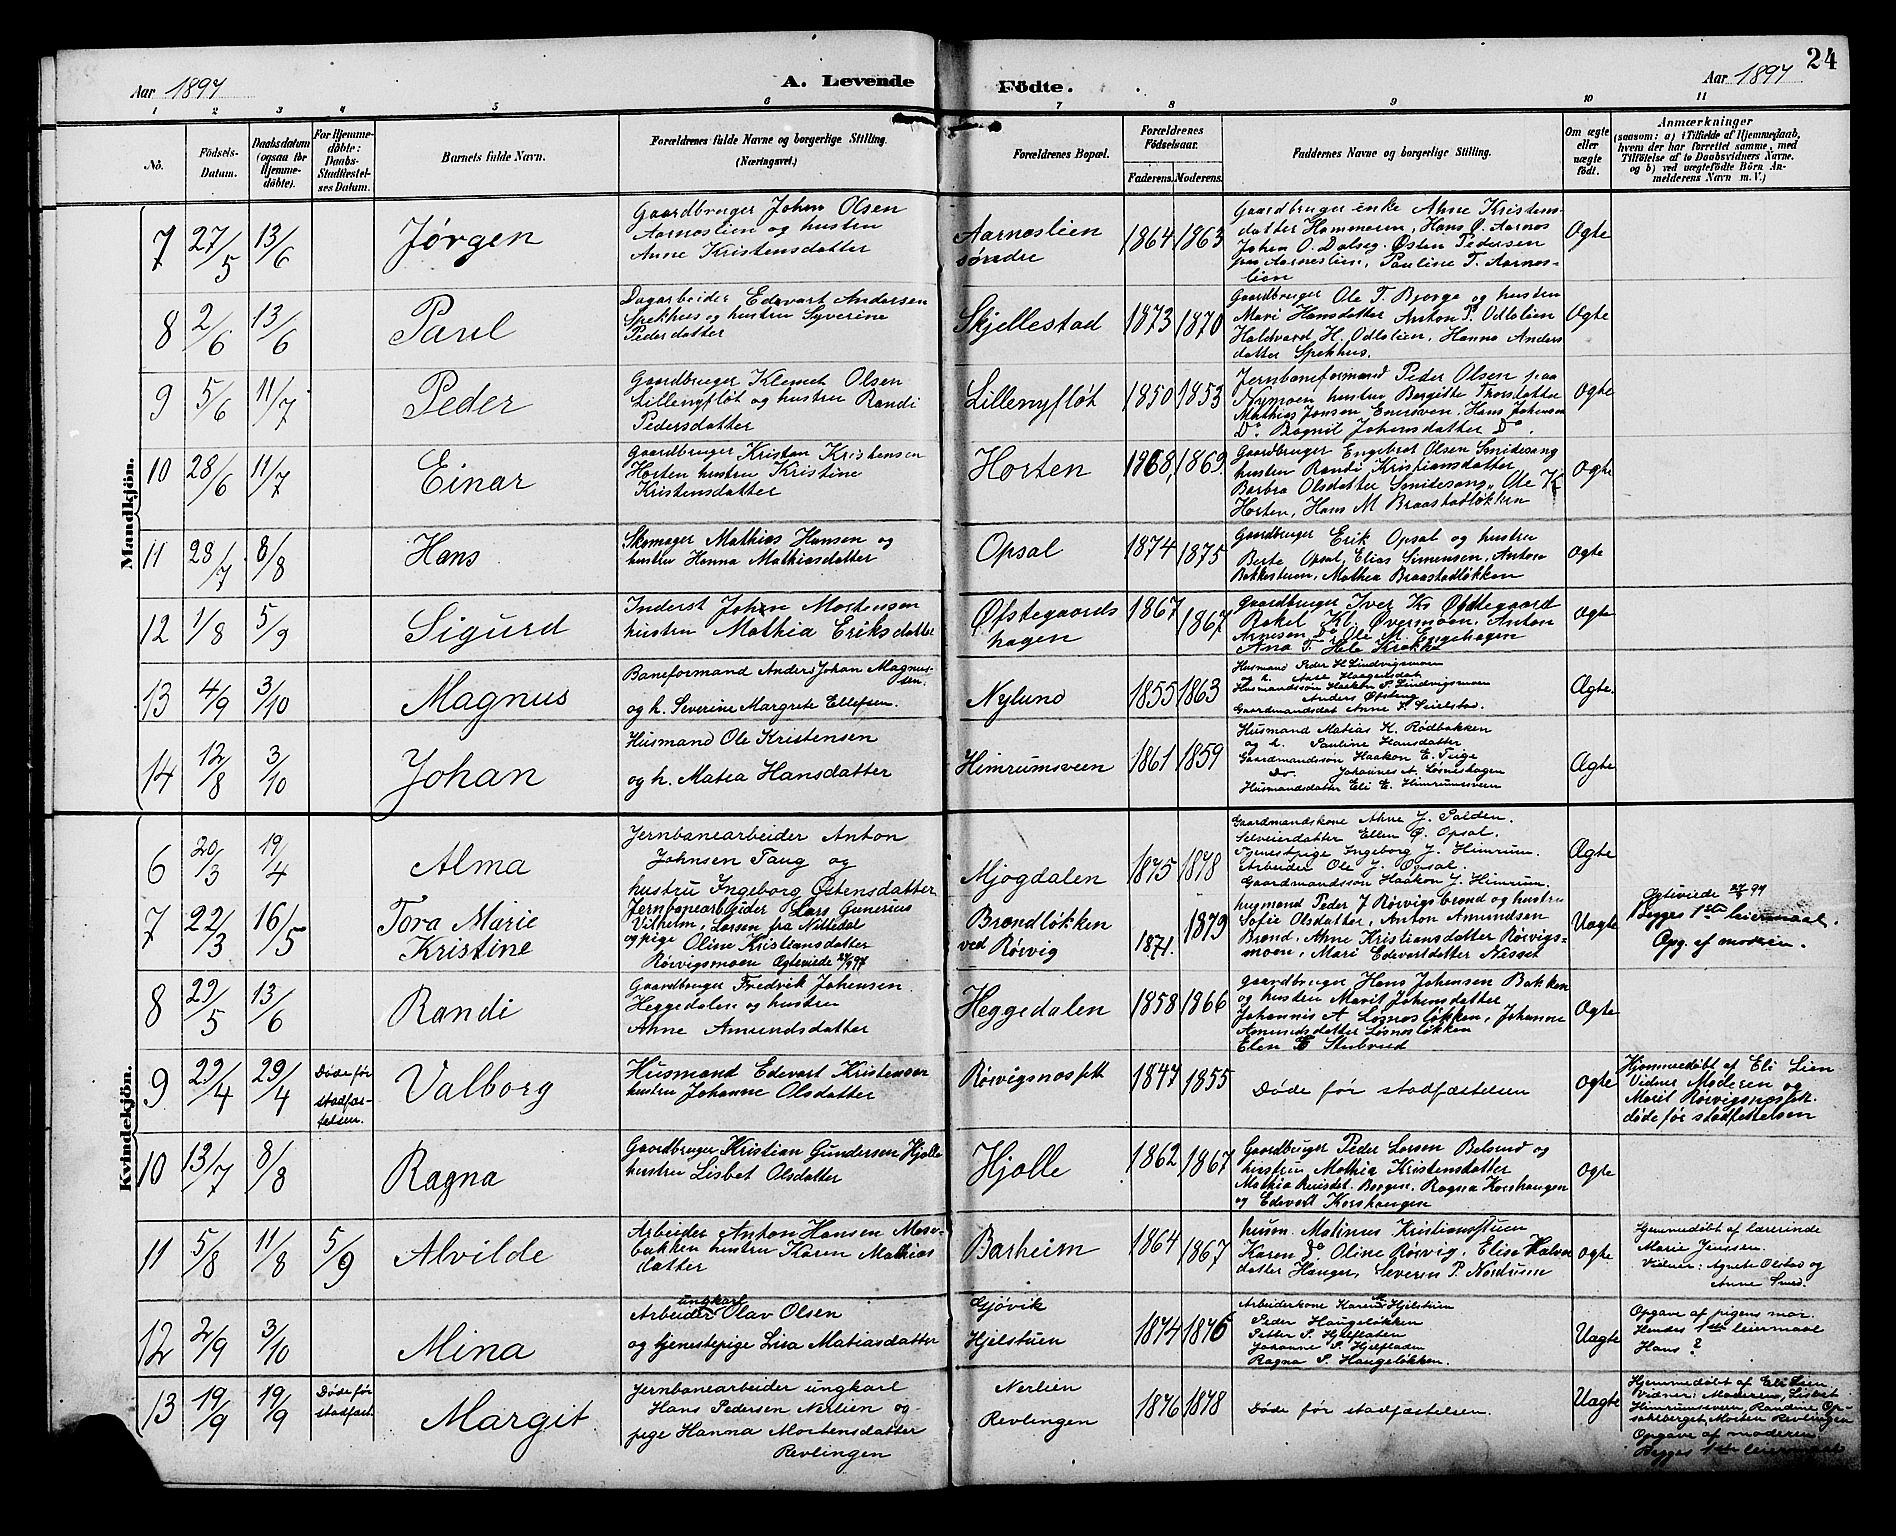 24
Aar 1897
A. Levende
Födte.
Aar 1897
1 2 3 4 5 6 7 8 9 10 11
No.
Födsels-
Datum.
Daabsdatum
(ogsaa for
Hjemme-
döbte).
For Hjemme-
döbte:
Daabs-
Stadfæstel-
ses Datum.
Barnets fulde Navn.
Forældrenes fulde Navne og borgerlige Stilling.
(Næringsvei.)
Forældrenes Bopæl.
Forældrenes
Födselsaar.
Faderens. Moderens.
Faddernes Navne og borgerlige Stilling.
Om ægte
eller
uægte
födt.
Anmærkninger
(saasom: a) i Tilfælde af Hjemmedaab,
hvem der har forrettet samme, med
Tilföielse af to Daabsvidners Navne.
og b) ved uægtefödte Börn An-
melderens Navn m. V.)
Mandkjön.
7 27/5 13/6
Jørgen
Gaardbruger Johan Olsen
Aarnoslien og hustru
Anne Kristensdatter
Aarnoslien
søndre
1864 1863
Gaardbruger enke Ahne Kristens-
datter Hammeren, Hans O. Aarnos
Johan O. Dalseg. Østen Pedersen
paa Aarnoslien, Pauline T. Aarnos-
lien
Ogte
8 2/6 13/6
Paul
Dagarbeider Edevart Andersen
Spekhus og hustru Syverine
Pedersdatter
Skjellestad
1873 1870
Gaardbruger Ole T. Bjorge og hustru
Mari Hansdatter Anton P. Odlolien
Haldvard H. Odlolien, Hanna Anders
datter Spekhus.
Ogte
9 5/6 11/7
Peder
Gaardbruger Klemet Olsen
Lillenyfløt og hustru Randi
Pedersdatter
Lillenyfløt
1850 1853
Jernbaneformand Peder Olsen paa
Nymoen hustru Bergitte Thorsdatter
Mathias Jonsen Enersveen, Hans Johansen
Do. Bagnil Johansdatter Do.
Ogte
10 28/6 11/7
Einar
Gaardbruger Kristan Kristensen
Horten hustru Kristine
Kristensdatter
Horten
1868, 1869.
Gaardbruger Engebret Olsen Smidesang
hustru Randi Kristiansdatter
Barbra Olsdatter Smidesang, Ole K
Horten, Hans M Braastadløkken
Ogte
11 28/7 8/8
Hans
Skomager Mathias Hansen og
hustru Hanna Mathiasdatter
Opsal
1874 1875
Gaardbruger Erik Opsal og hustru
Berte Opsal, Elias Simensen, Antona
Bakkesteien, Mathea Braastadløkken
Ogte
12 1/8 5/9
Sigurd
Inderst Johan Mortensen
hustru Mathia Eriksdatter
Øfstegaards
hagen
1867 1867
Gaardbruger Iver Ks Øfstegaard
Rakel Kl. Øvermoen, Anton
Arnesen Do Ole M. Engehagen
Ana T. Hele Krokhi
Ogte
13 4/9 3/10
Magnus
Baneformand Anders Johan Magnus-
sen.
og h. Severine Margrete Ellefsen.
Nylund
1855 1863
Husmand Peder H. Lindvigsmoen
og h. Anne Haagensdat
Husmandssøn Haakon P. Lindvigsmoen
Anders Øfsteng
Gaardmandsdat Anne S. Seielstad.
Ægte.
14 12/8 3/10
Johan
Husmand Ole Kristensen
og h. Matea Hansdatter
Himrumsveen
1861 1859
Husmand Matias K. Rødbakken
og h. Pauline Hansdatter
Gaardmandssøn Haakon E. Teige
Do Johannes A. Løsneshagen
Husmandsdatter Eli E. Himrumsveen
Ægte
Kvindekjön.
6 20/3 19/4
Alma
Jernbanearbeider Anton
Johnsen Taug og
hustru Ingeborg Østensdatter
Mjogdalen
1875 1878
Gaardmandskone Ahne J. Polden.
Selveierdatter Ellen O. Opsal.
Tjenestpige Ingeborg J. Himrum.
Arbeider Ole J. Opsal.
Gaardmandssøn Haakon J. Himrum.
Ægte
7 22/3 16/5
Tora Marie
Kristine
Jernbanearbeider Lars Gunerius
Vilhelm, Larsen fra Nittedal
og pige Oline Kristiansdatter
Rørvigsmoen Ægteviede 27/9 97
Brondløkken
ved Rørvig
1871. 1879
husmand Peder J Rørvigsbrond og hustru
Sofie Olsdatter, Anton Amundsen
Brond, Ahne Kristiansdatter Rørvigs-
moen, Mari Edevartdatter Nesset
Uagte
Ægteviede 27/9 97
Begges 1ste leiermaal.
Opg. af moderen.
8 23/5 13/6
Randi
Gaardbruger Fredrik Johansen
Heggedalen og hustru
Ahne Amundsdatter
Heggedalen
1858 1866
Gaardbruger Hans Johansen Bakken
og hustru Marit Johansdatter
Johannis A Løsnosløkken, Johanne
Amundsdatter Løsnosløkken
Elen E Stubrud
Ogte
9 23/4 29/4
Døde før
stadfæs-
telsen.
Valborg
Husmand Edevart Kristensen
hustru Johanne Olsdatter
Rørvigsnosfelt
1847 1855
Døde før stadfæstelsen
Ogte
Hjemmedøbt af Eli Lien
Vidner Moderen og
Marit Rørvigsnosfelt.
døde før stadfestelsen
10 13/7 8/8
Ragna
Gaardbruger Kristian Gundersen Hjolle
hustru Lisbet Olsdatter
Hjolle
1862 1867
Gaardbruger Peder Larsen Belsrud og
hustru Mathia Kristensdatter
Mathia Borgen, Ragna Korshaugen
og Edevart Korshaugen
Ogte
11 5/8 11/8 5/9
Alvilde
Arbeider Anton Hansen Mosv-
bakken hustru Karen Mathias
datter
Barheim
1864 1867
husm. Matinus Kristianstuen
Karen Do Oline Rørvig, Elise Halvor
datter Hauger, Severin P. Nordrum
Ogte
Hjemmedøbt af lærerinde
Marie Jenssen.
Vidner: Agnete Olstad og
Anne Smed.
12 2/9 3/10
Mina
ungkarl
Arbeider Olav Olsen
og tjenestepige Lisa Matiasdatter
Gjøvik
Hjelstuen
1874 1876
Arbeiderkone Karen Hjelstuen
Peder Haugeløkken
Petter S. Hjelfladen
Johanne S. Hjelfladen
Ragna P. Haugeløkken.
Uagte
Opgave af pigens mor.
Hendes 1ste leiermaal
Hans ?
13 19/9 19/9
Døde før
stadfæst.
Margit
Jernbanearbeider ungkarl
Hans Pedersen Nerlien og
pige Hanna Mortensdatter
Revlingen
Nerlien
Revlingen
1876 1878
Døde før stadfæstelsen.
Uagte
Hjemmedøbt af Eli Lien
Vidner: Moderen, Lisbet
Himrumsveen, Randine Op-
sahlberget, Morten Revlingen
Opgave af moderen.
Begges 1ste leiermaal